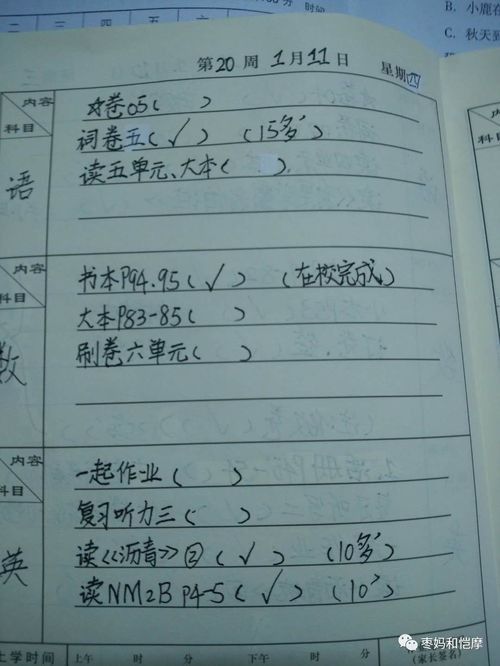 分 时间
二 三 四 五 六
B. 小鹿在
C. 秋天到
第20周 1月11日 星期四
内容
科目
语
☆卷05( )
词卷五(√) (15多')
读五单元、大本( )
数
书本P94.95(√) (在校完成)
大本P83-85( )
刷卷六单元( )
内容
科目
英
一起作业( )
复习听力三( )
读《沥青》②(√) (10多')
读NM2B P4-5(√) (10')
上学时间 上午 时 分 下午 时 分
(家长签名)
枣妈和恺摩